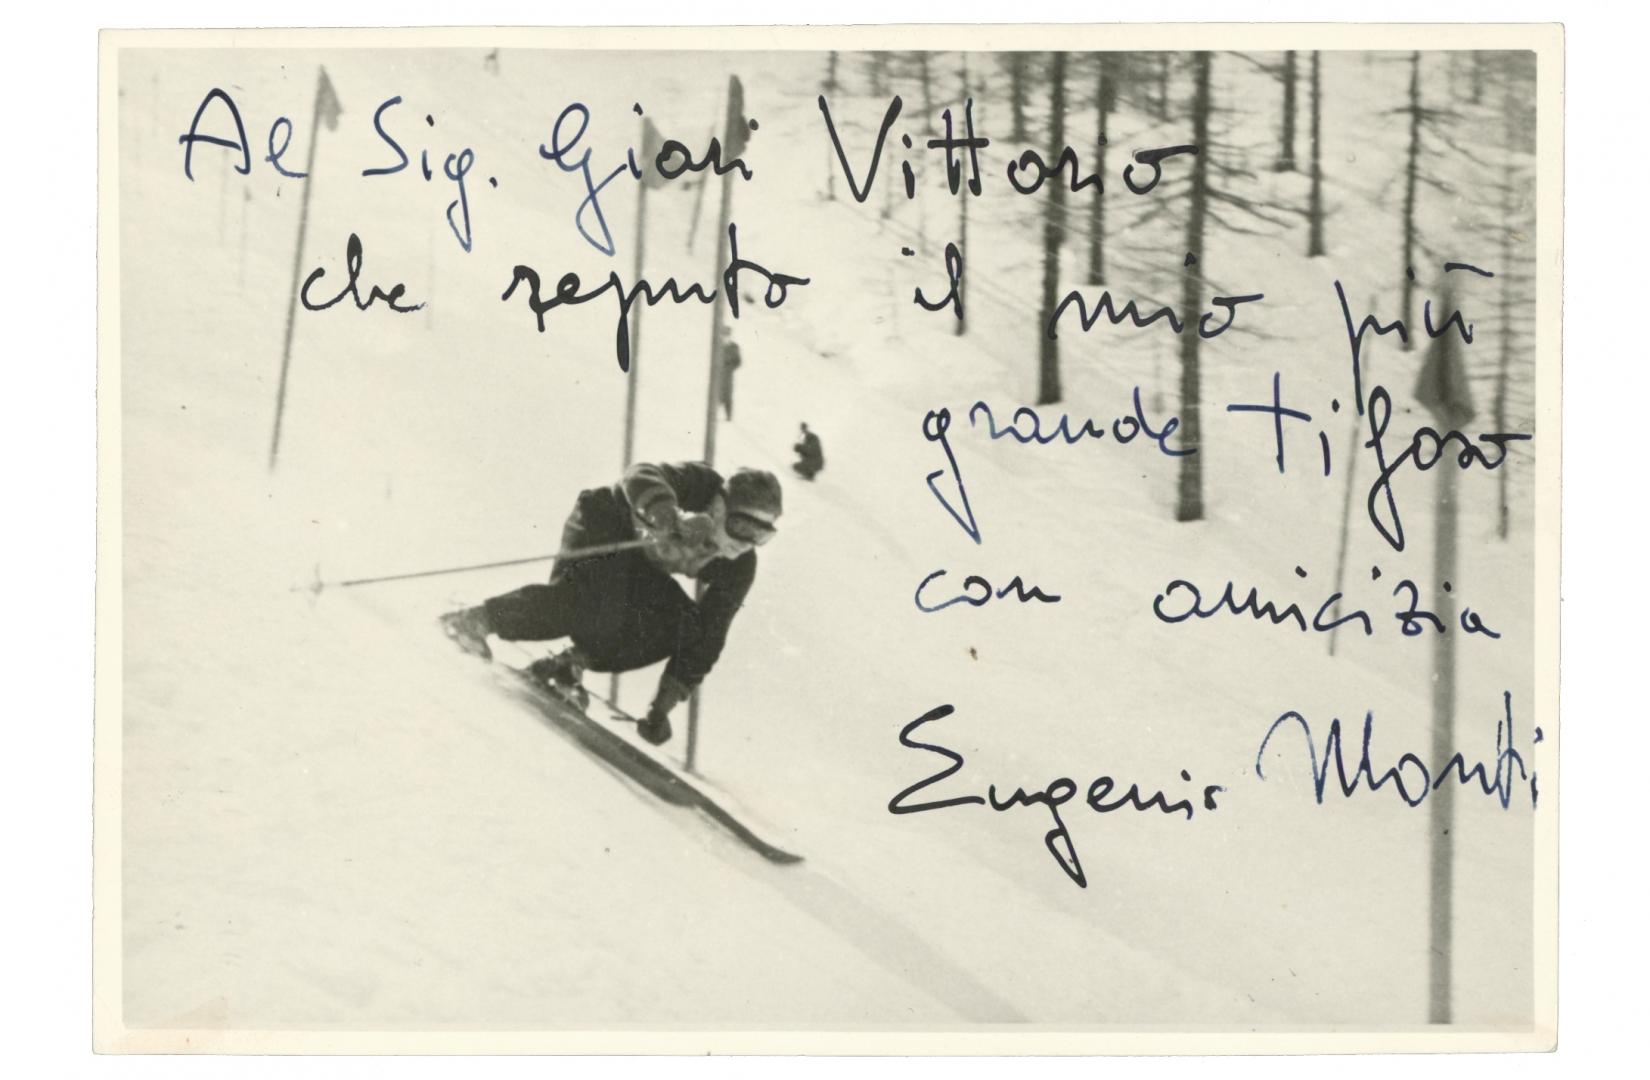 Al Sig. Giari Vittorio
che reputo il mio più
grande tifoso
con amicizia
Eugenio Monti